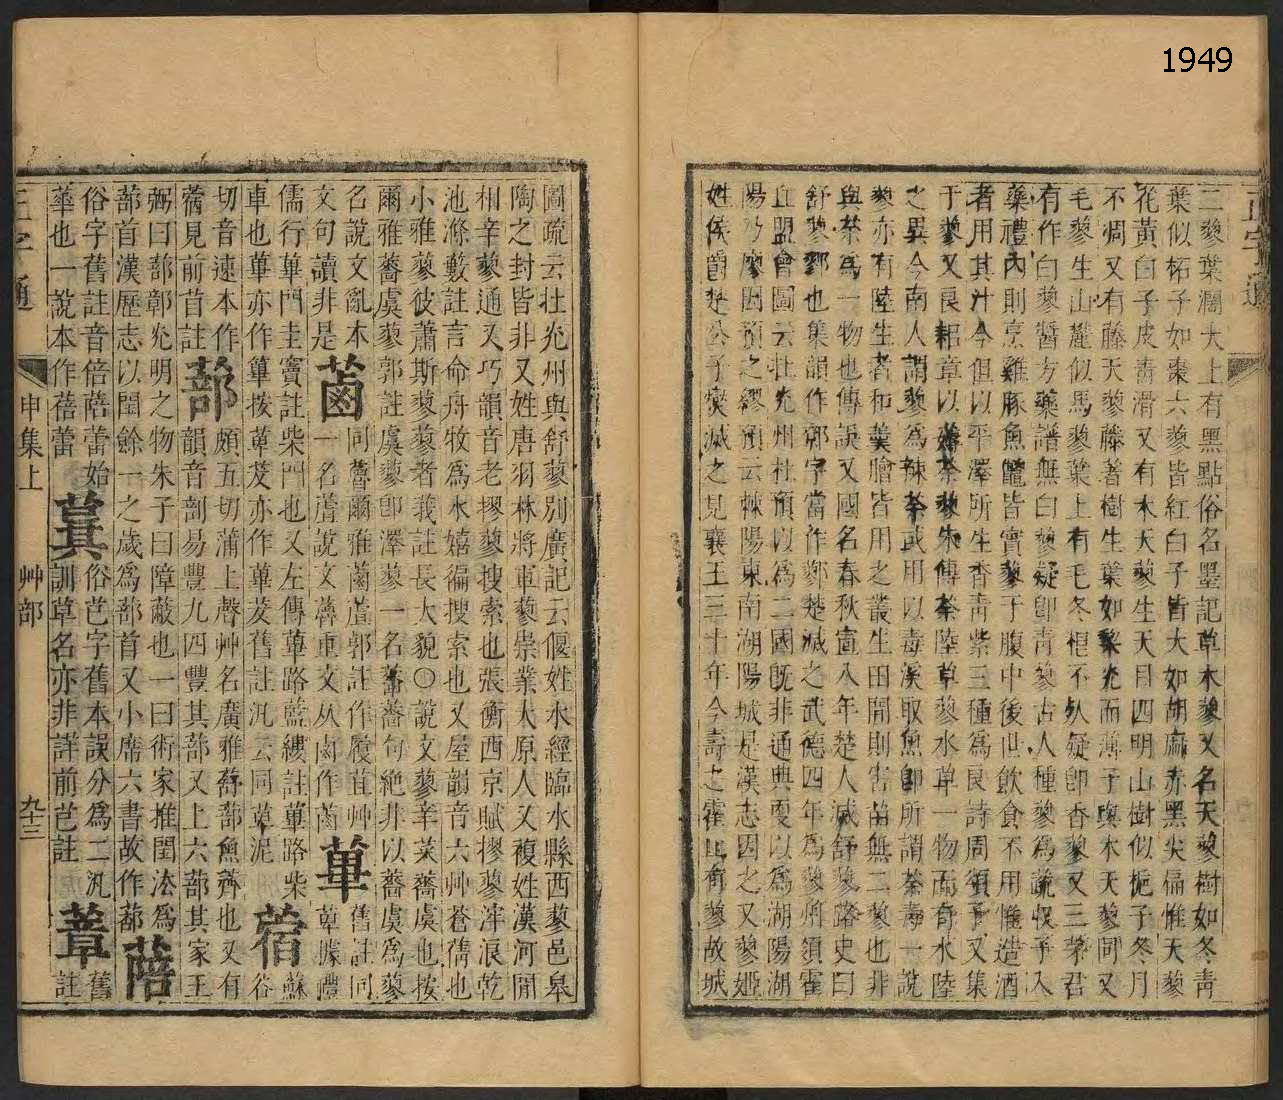 1949
正字通
二蓼葉濶大上有黑點俗名墨記草木蓼又名天蓼樹如冬青
葉似柘子如棗六蓼皆紅白子皆大如胡麻赤黑尖扁惟天蓼
花黃白子皮青滑又有木天蓼生天目四明山樹似梔子冬月
不凋又有藤天蓼藤著樹生葉如梨光而薄子與木天蓼同又
毛蓼生山麓似馬蓼葉上有毛冬根不疑卽香蓼又三茅君
有作白蓼醬方藥譜無白蓼疑卽青蓼古人種蓼爲蔬收子入
藥禮內則烹雞豚魚鼈皆實蓼于腹中後世飲食不用惟造酒
者用其汁今但以平澤所生香青紫三種爲良詩周頌予又集
于蓼又良耜章以薅荼蓼朱傳荼陸草蓼水草一物而有水陸
之異今南人謂蓼爲辣荼或用以毒溪取魚卽所謂荼毒一說
蓼亦有陸生者和羹膾皆用之叢生田閒則害苗無二蓼也非
與荼爲一物也傳誤又國名春秋宣八年楚人滅舒蓼路史曰
舒蓼鄝也集韻作鄝字當作鄝楚滅之武德四年爲蓼州領霍
丘盟會圖云杜光州杜預以爲二國旣非通典更以爲湖陽湖
陽乃廖國預之繆預云棘陽東南湖陽城是漢志因之又蓼姬
姓侯爵楚公子燮滅之見襄王三十年今壽之霍丘有蓼故城
圖疏云壯光州與舒蓼別廣記云偃姓水經臨水縣西蓼邑皋
陶之封皆非又姓唐羽林將軍蓼崇業太原人又複姓漢河閒
相辛蓼通又巧韻音老摎蓼搜索也張衡西京賦摎蓼浶浪乾
池滌藪註言命舟牧爲水嬉徧搜索也又屋韻音六艸蒼蒨也
小雅蓼彼蕭斯蓼蓼者莪註長大貌〇說文蓼辛菜薔虞也按
爾雅薔虞蓼郭註虞蓼卽澤蓼一名薔薔句絕非以薔虞爲蓼
名說文亂本
文句讀非是 蓾 同蘆爾雅蓾蔖郭註作履苴艸
一名蔖說文蘆重文从鹵作蓾 蓽 舊註同
儒行蓽門圭竇註柴門也又左傳蓽路藍縷註蓽路柴
車也蓽亦作篳按蓽茇亦作蓽茇舊註汎云同蓽泥 蓿 蘇
切音速本作
蓿見前苜註 蔀 頗五切蒲上聲艸名廣雅蕣蔀魚薺也又有
韻音剖易豐九四豐其蔀又上六蔀其家王
弼曰蔀鄣光明之物朱子曰障蔽也一曰術家推閏法爲
蔀首漢歷志以閏餘一之歲爲蔀首又小席六書故作蔀 蔐
俗字舊註音倍蔐蕾始
華也一說本作蓓蕾 蓂 俗芑字舊本誤分爲二汎
訓草名亦非詳前芑註 葦 舊
註
正字通
申集上
艸部
九十三